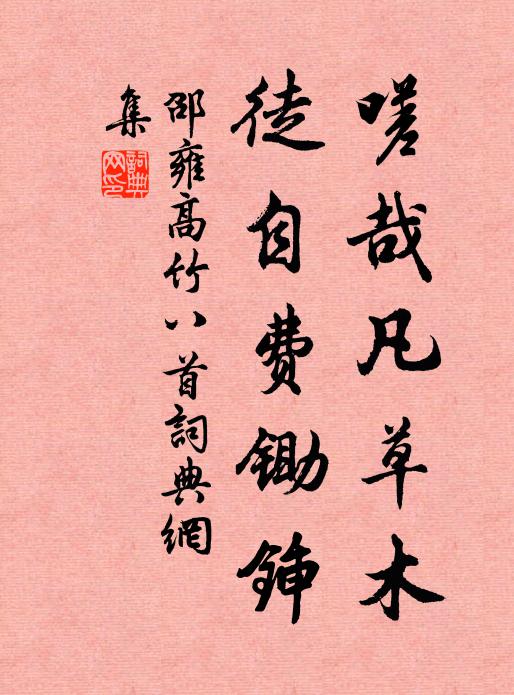 嗟哉凡草木
徒自费锄䤵
邵雍高竹八首詞典網
集
詞典
网印